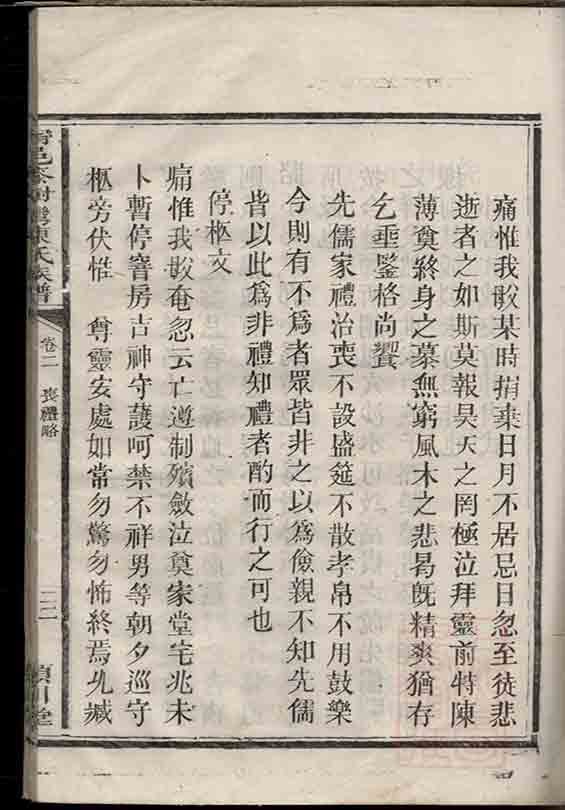 痛惟我敭某時捐棄日月不居忌日忽至徒悲
逝者之如斯莫報昊天之罔極泣拜靈前特陳
薄奠終身之慕無窮風木之悲曷旣精爽猶存
乞垂鍳格尚饗
先儒家禮治喪不設盛筵不散孝帛不用鼓樂
今則有不爲者眾皆非之以爲儉親不知先儒
皆以此爲非禮知禮者酌而行之可也
停柩文
痛惟我敭奄忽云亡遵制殯斂泣奠家堂宅兆未
卜暫停窨房吉神守護呵禁不祥男等朝夕巡守
柩旁伏惟 尊靈安處如常勿驚勿怖終焉允臧
陳氏族譜
卷二 喪禮略
潁川堂